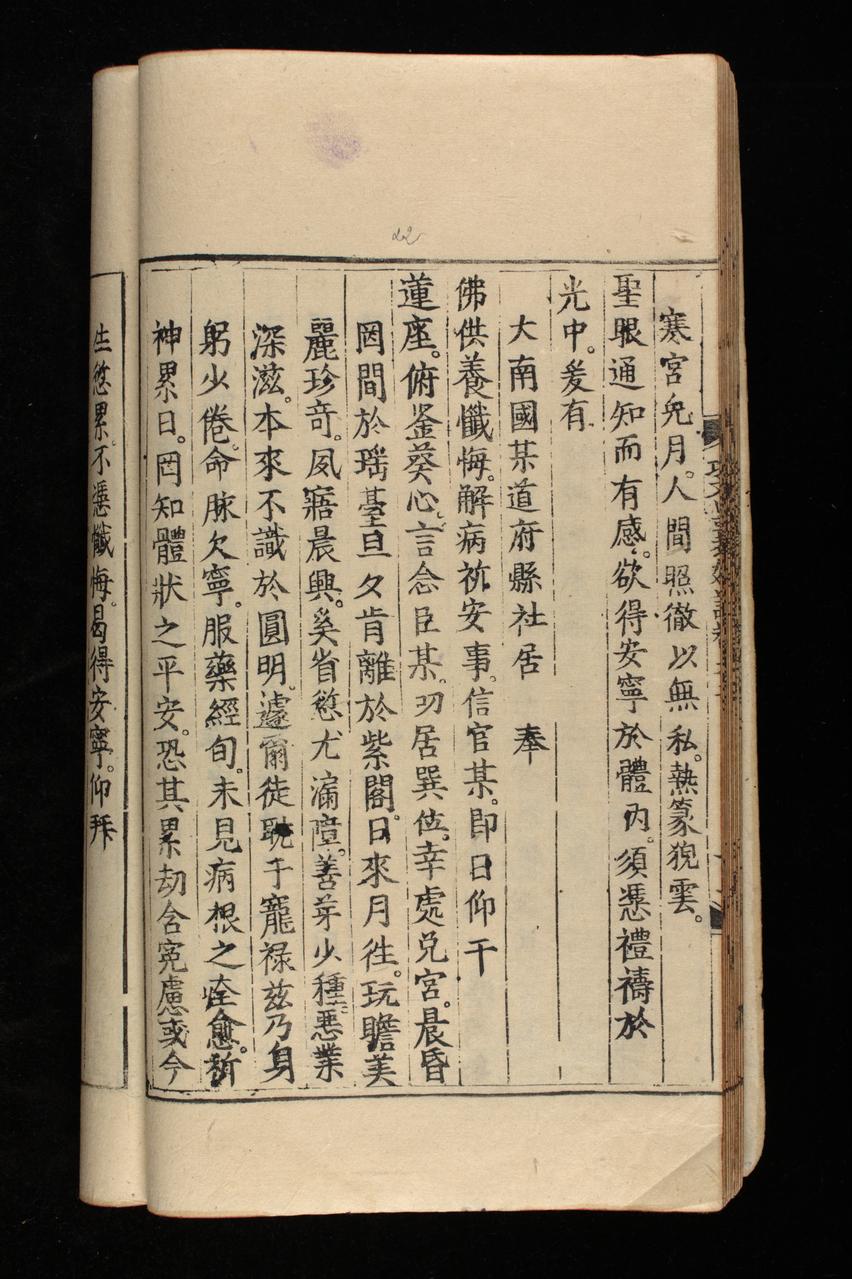 22
寒宮皃月。人間照徹以無私。熱篆猊雲。
聖眼通知而有感。欲得安寧於體內。須憑禮禱於
光中。爰有
大南國某道府縣社居　奉
佛供養懺悔。解病祈安事。信官某。即日仰干
蓮座。俯鉴葵心。言念臣某。叨居巽位。幸處兌宮。晨昏
罔間於瑶䑓旦夕肯離於紫閣。日來月徃。玩瞻美
麗珍奇。夙寤晨興。奚省愆尤漏障。善芽少種。惡業
深滋。本來不識於圓明。遽爾徒耽于寵禄兹乃身
躬少倦。命脉欠寧。服藥經旬。未見病根之痊愈。禱
神累日。罔知體狀之平安。恐其累劫含冤慮或今
生愆累。不憑懺悔。曷得安寧。仰拜